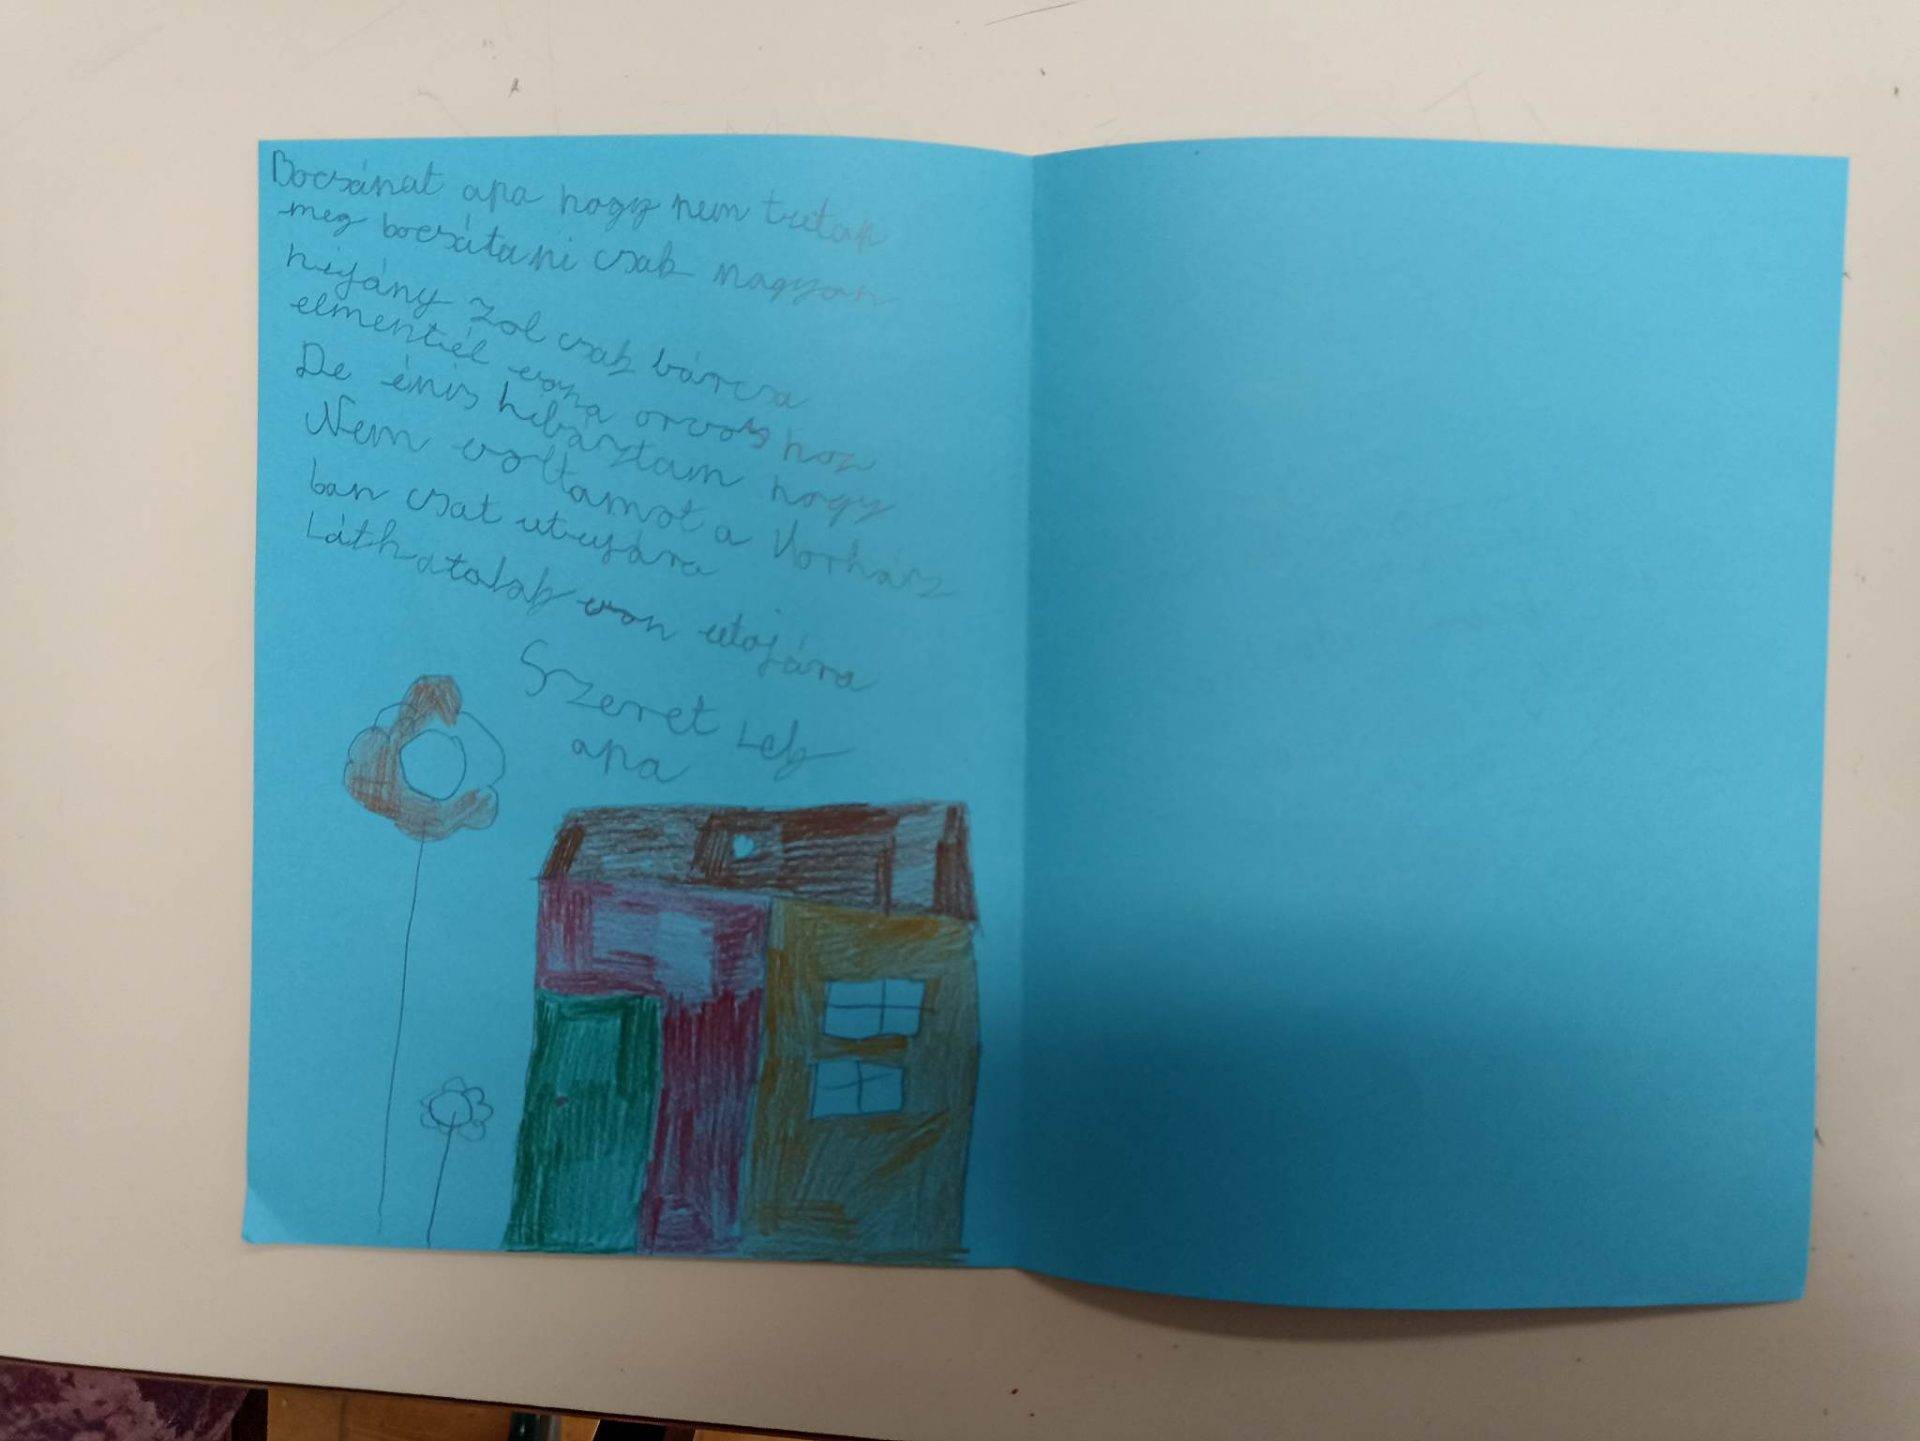 Bocsánat apa hogy nem tutak
meg bocsátani csak nagyon
hijány zol csak bárcsa
elmentiél vona orvos hoz
De énis hibásztam hogy
Nem voltamot a Korház
ban csat utujára
Láthatalak von utojára
Szeret Lek
apa